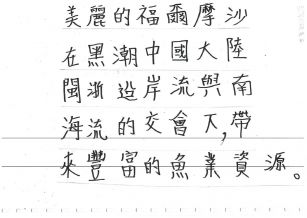 美麗的福爾摩沙
在黑潮中國大陸
閩浙沿岸流與南
海流的交會下,帶
來豐富的魚業資源。